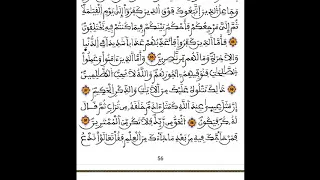 وَجَاعِلُ الَّذِينَ اتَّبَعُوكَ فَوْقَ الَّذِينَ كَفَرُوا إِلَىٰ يَوْمِ الْقِيَٰمَةِ
ثُمَّ إِلَيَّ مَرْجِعُكُمْ فَأَحْكُمُ بَيْنَكُمْ فِيمَا كُنتُمْ فِيهِ تَخْتَلِفُونَ
فَأَمَّا الَّذِينَ كَفَرُوا فَأُعَذِّبُهُمْ عَذَابًا شَدِيدًا فِي الدُّنْيَا
وَالْأَخِرَةِ وَمَا لَهُم مِّن نَّٰصِرِينَ وَأَمَّا الَّذِينَ ءَامَنُوا وَعَمِلُوا
الصَّٰلِحَٰتِ فَنُوَفِّيهِمُ أُجُورَهُمْ وَاللَّهُ لَا يُحِبُّ الظَّٰلِمِينَ
ذَٰلِكَ نَتْلُوهُ عَلَيْكَ مِنَ الْأَيَٰتِ وَالذِّكْرِ الْحَكِيمِ
إِنَّ مَثَلَ عِيسَىٰ عِندَ اللَّهِ كَمَثَلِ ءَادَمَ خَلَقَهُ مِن تُرَابٍ ثُمَّ قَالَ
لَهُ كُن فَيَكُونُ الْحَقُّ مِن رَّبِّكَ فَلَا تَكُن مِّنَ الْمُمْتَرِينَ
فَمَنْ حَاجَّكَ فِيهِ مِنْ بَعْدِ مَا جَاءَكَ مِنَ الْعِلْمِ فَقُلْ تَعَالَوْا نَدْعُ
56